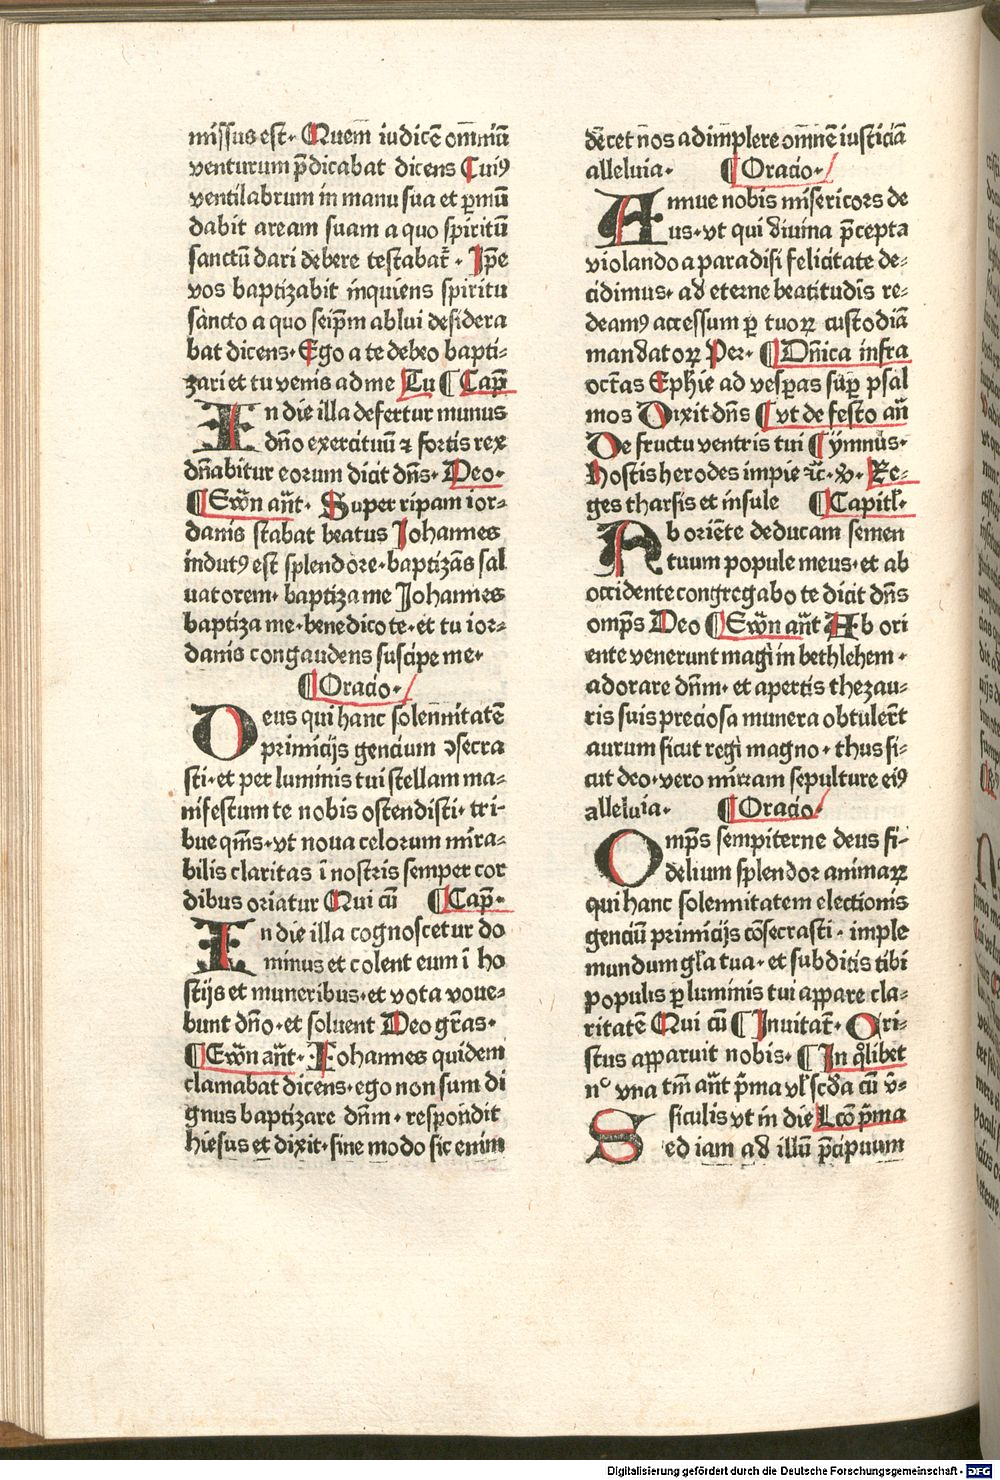 missus est· Quem iudicē om̄niū
venturum p̄dicabat dicens Cuiꝰ
ventilabrum in manu sua et ꝑmū
dabit aream suam a quo spiritū
sanctū dari debere testabat᷑· Ip̄e
vos baptizabit inquiens spiritu
sancto a quo seip̄m ablui desidera
bat dicens· Ego a te debeo bapti⸗
zari et tu venis ad me Tu ¶ Cap̄
In die illa defertur munus
dn̄o exercituū ⁊ fortis rex
dn̄abitur eorum dicit dn̄s· Deo·
¶ Ewn̄ an̄t· Super ripam ior⸗
danis stabat beatus Johannes
indutꝰ est splendore· baptizās sal
uatorem· baptiza me Johannes
baptiza me· benedico te· et tu ior⸗
danis congaudens suscipe me·
¶ Oracio·
Deus qui hanc solennitatē
primicijs gencium ꝯsecra
sti· et per luminis tui stellam ma⸗
nifestum te nobis ostendisti· tri⸗
bue qm̄s· vt noua celorum mira⸗
bilis claritas ī nostris semper cor
dibus oriatur Qui cū ¶ Cap̄·
In die illa cognoscetur do
minus et colent eum ī ho
stijs et muneribus· et vota voue⸗
bunt dn̄o· et soluent Deo gr̄as·
¶ Ewn̄ an̄t· Iohannes quidem
clamabat dicens· ego non sum di
gnus baptizare dn̄m· respondit
hiesus et dixit· sine modo sic enim
decet nos adimplere om̄nem iusticiā
alleluia· ¶ Oracio·
Annue nobis misericors de
us· vt qui diuina p̄cepta
violando a paradisi felicitate de⸗
cidimus· ad eterne beatitudis re⸗
deamꝰ accessum ꝑ tuoꝝ custodiā
mandatoꝝ Per· ¶ Dn̄ica infra
octās Ephie ad vesꝑas suꝑ psal
mos Dixit dn̄s ¶ vt de festo an̄
De fructu ventris tui ¶ ymnus·
Hostis herodes impie ⁊c̄· ꝟ· Re⸗
ges tharsis et insule ¶ Capitl̄·
Ab oriēte deducam semen
tuum popule meus· et ab
occidente congregabo te dicit dn̄s
omp̄s Deo ¶ Ewn̄ an̄t Ab ori
ente venerunt magi in bethlehem·
adorare dn̄m· et apertis thezau⸗
ris suis preciosa munera obtulerūt
aurum sicut regi magno· thus si⸗
cut deo· vero mirram sepulture eiꝰ
alleluia· ¶ Oracio·
Omp̄s sempiterne deus fi⸗
delium splendor animaꝝ
qui hanc solemnitatem electionis
genciū primicijs cōsecrasti· imple
mundum gl̄a tua· et subditis tibi
populis ꝑ luminis tui appare cla⸗
ritatē Qui cū ¶ Inuitat̄· Cri⸗
stus apparuit nobis· ¶ In ql̄ibet
nº vna tm̄ an̄t p̄ma vl̄ scd̄a cū ꝟ·
Siculis vt in die Lcō p̄ma
Sed iam ad illū p̄cipuum
Digitalisierung gefördert durch die Deutsche Forschungsgemeinschaft - DFG